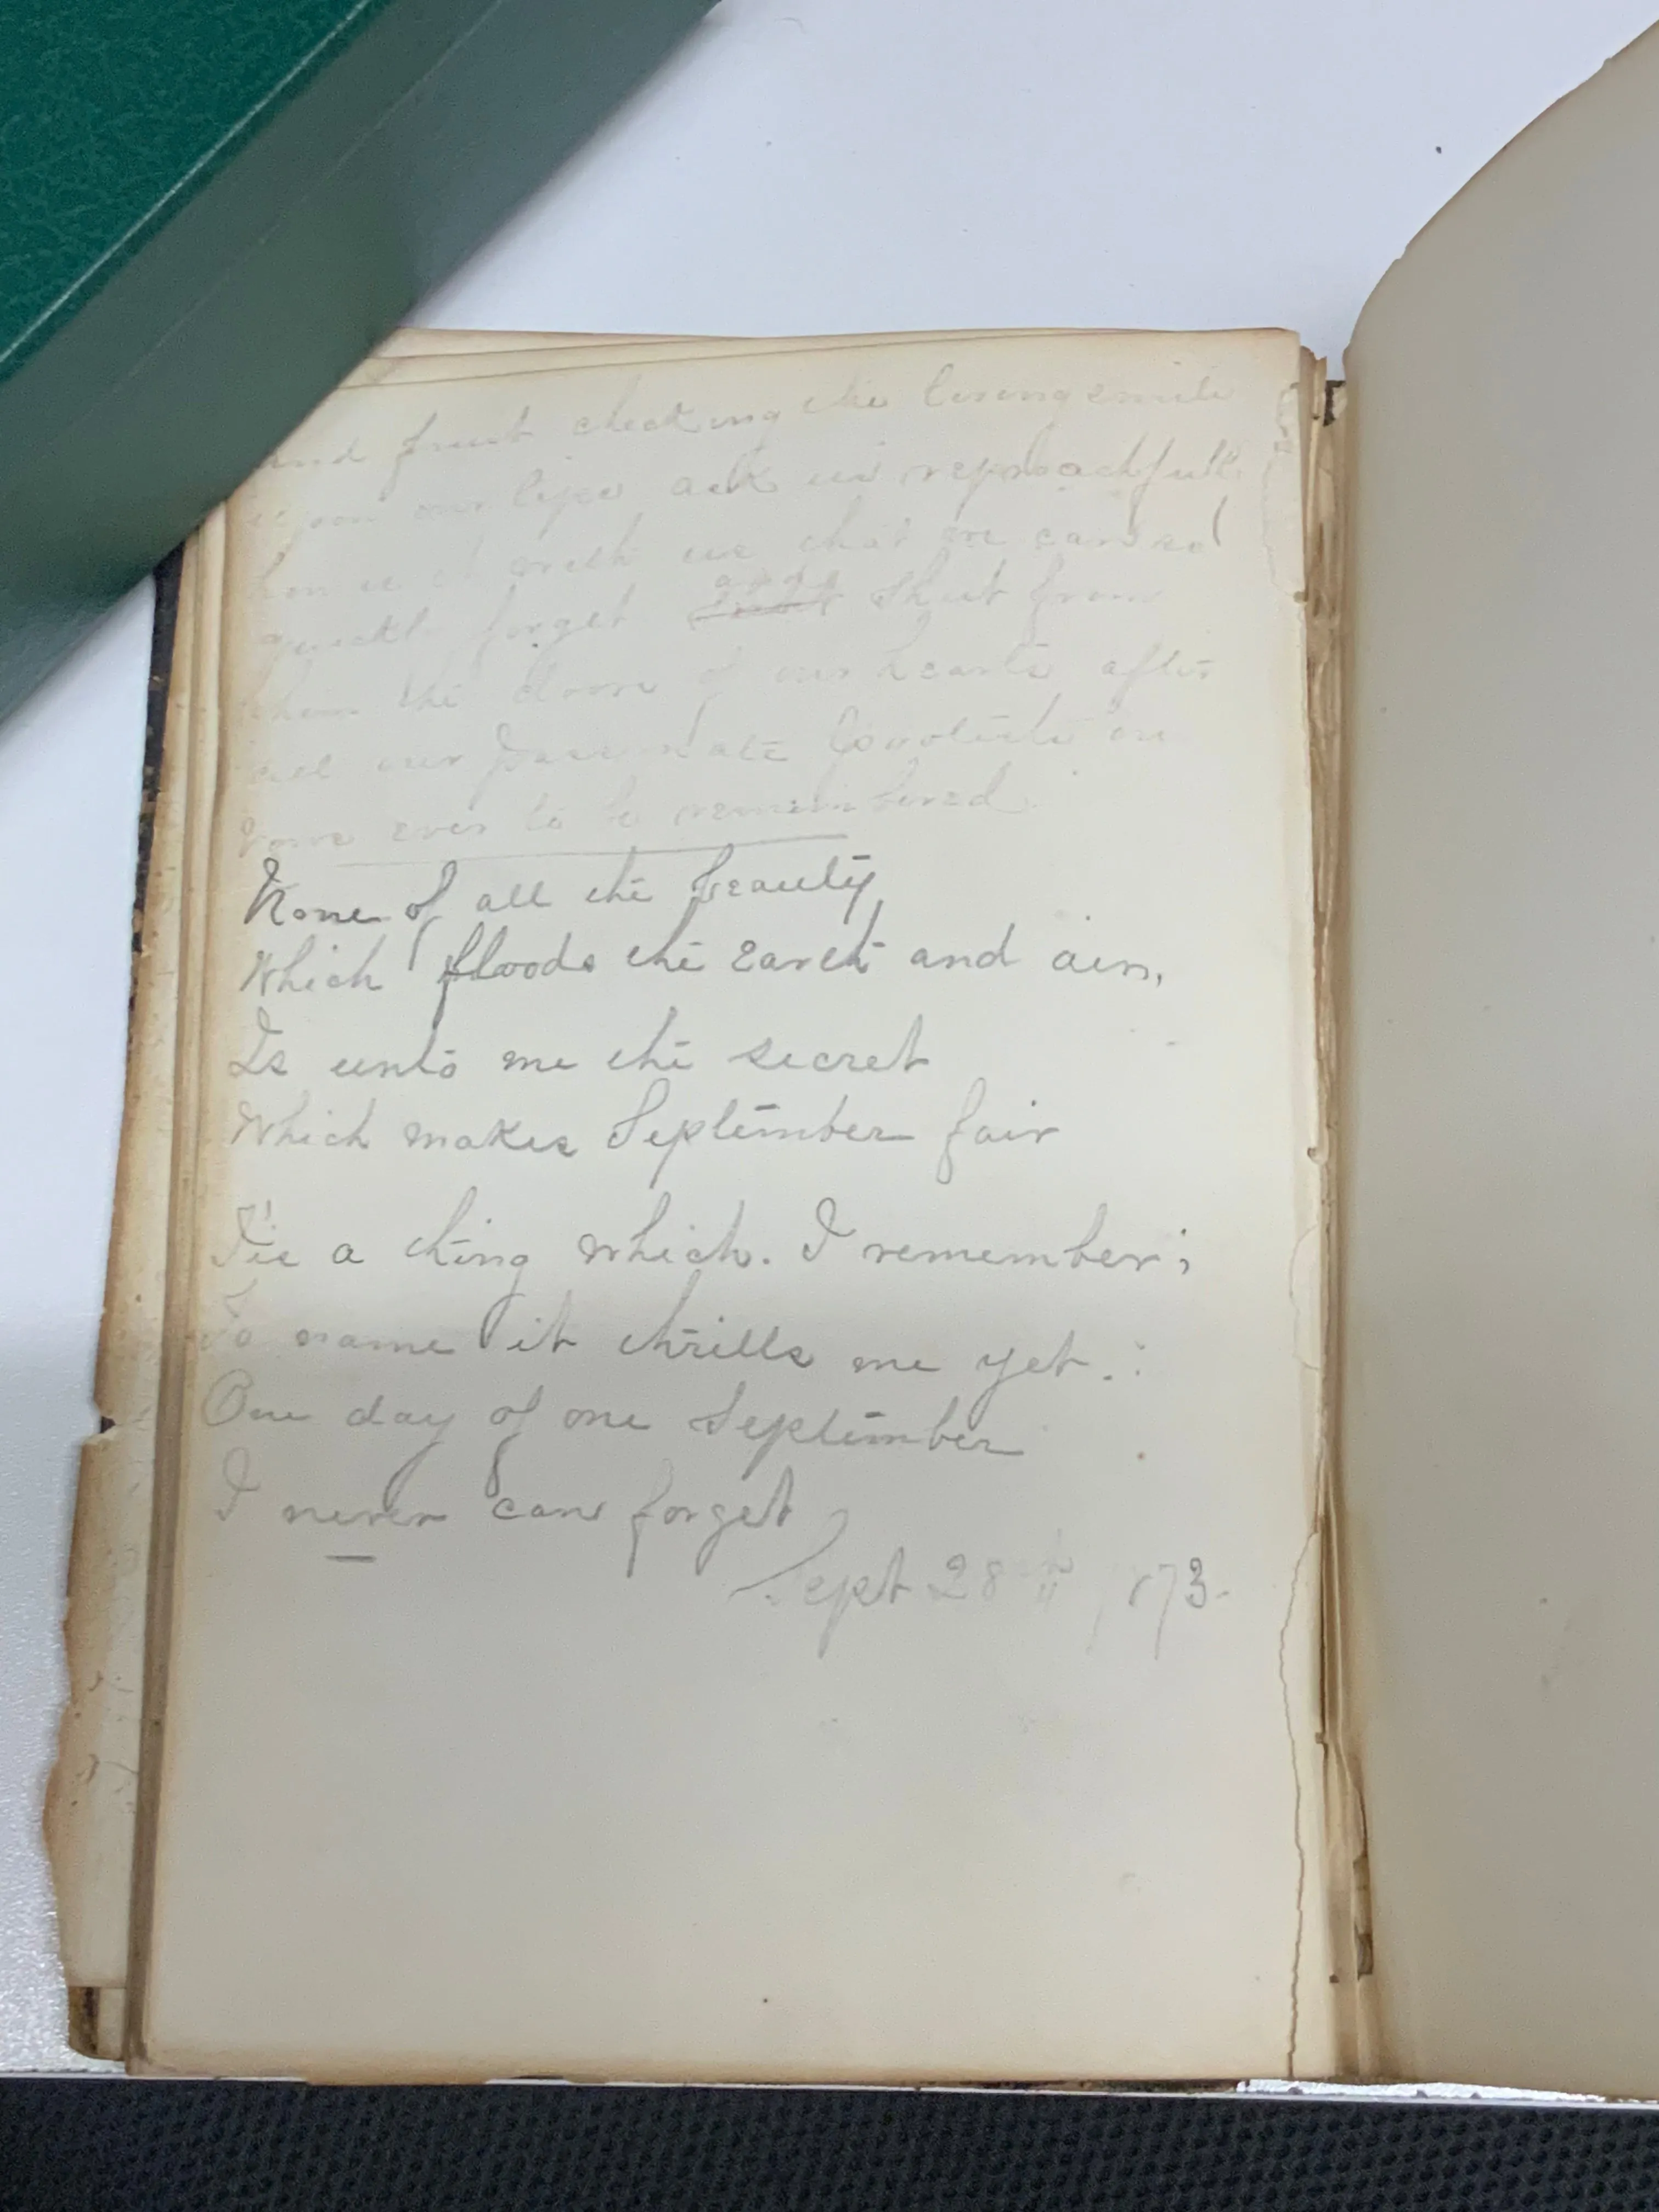 and checking the living smile
upon our lips ask us reproachfull
how is it with us that we can so
quickl forget and shut from
them the doors of our hearts after
all our passionate
vows ever to be remembered.
None of all the beauty
Which floods the Earth and air,
Is unto me the secret
Which makes September fair
T'is a thing which. I remember;
To name it thrills me yet.:
One day of one September
I never can forget
Sept 28th 1873.